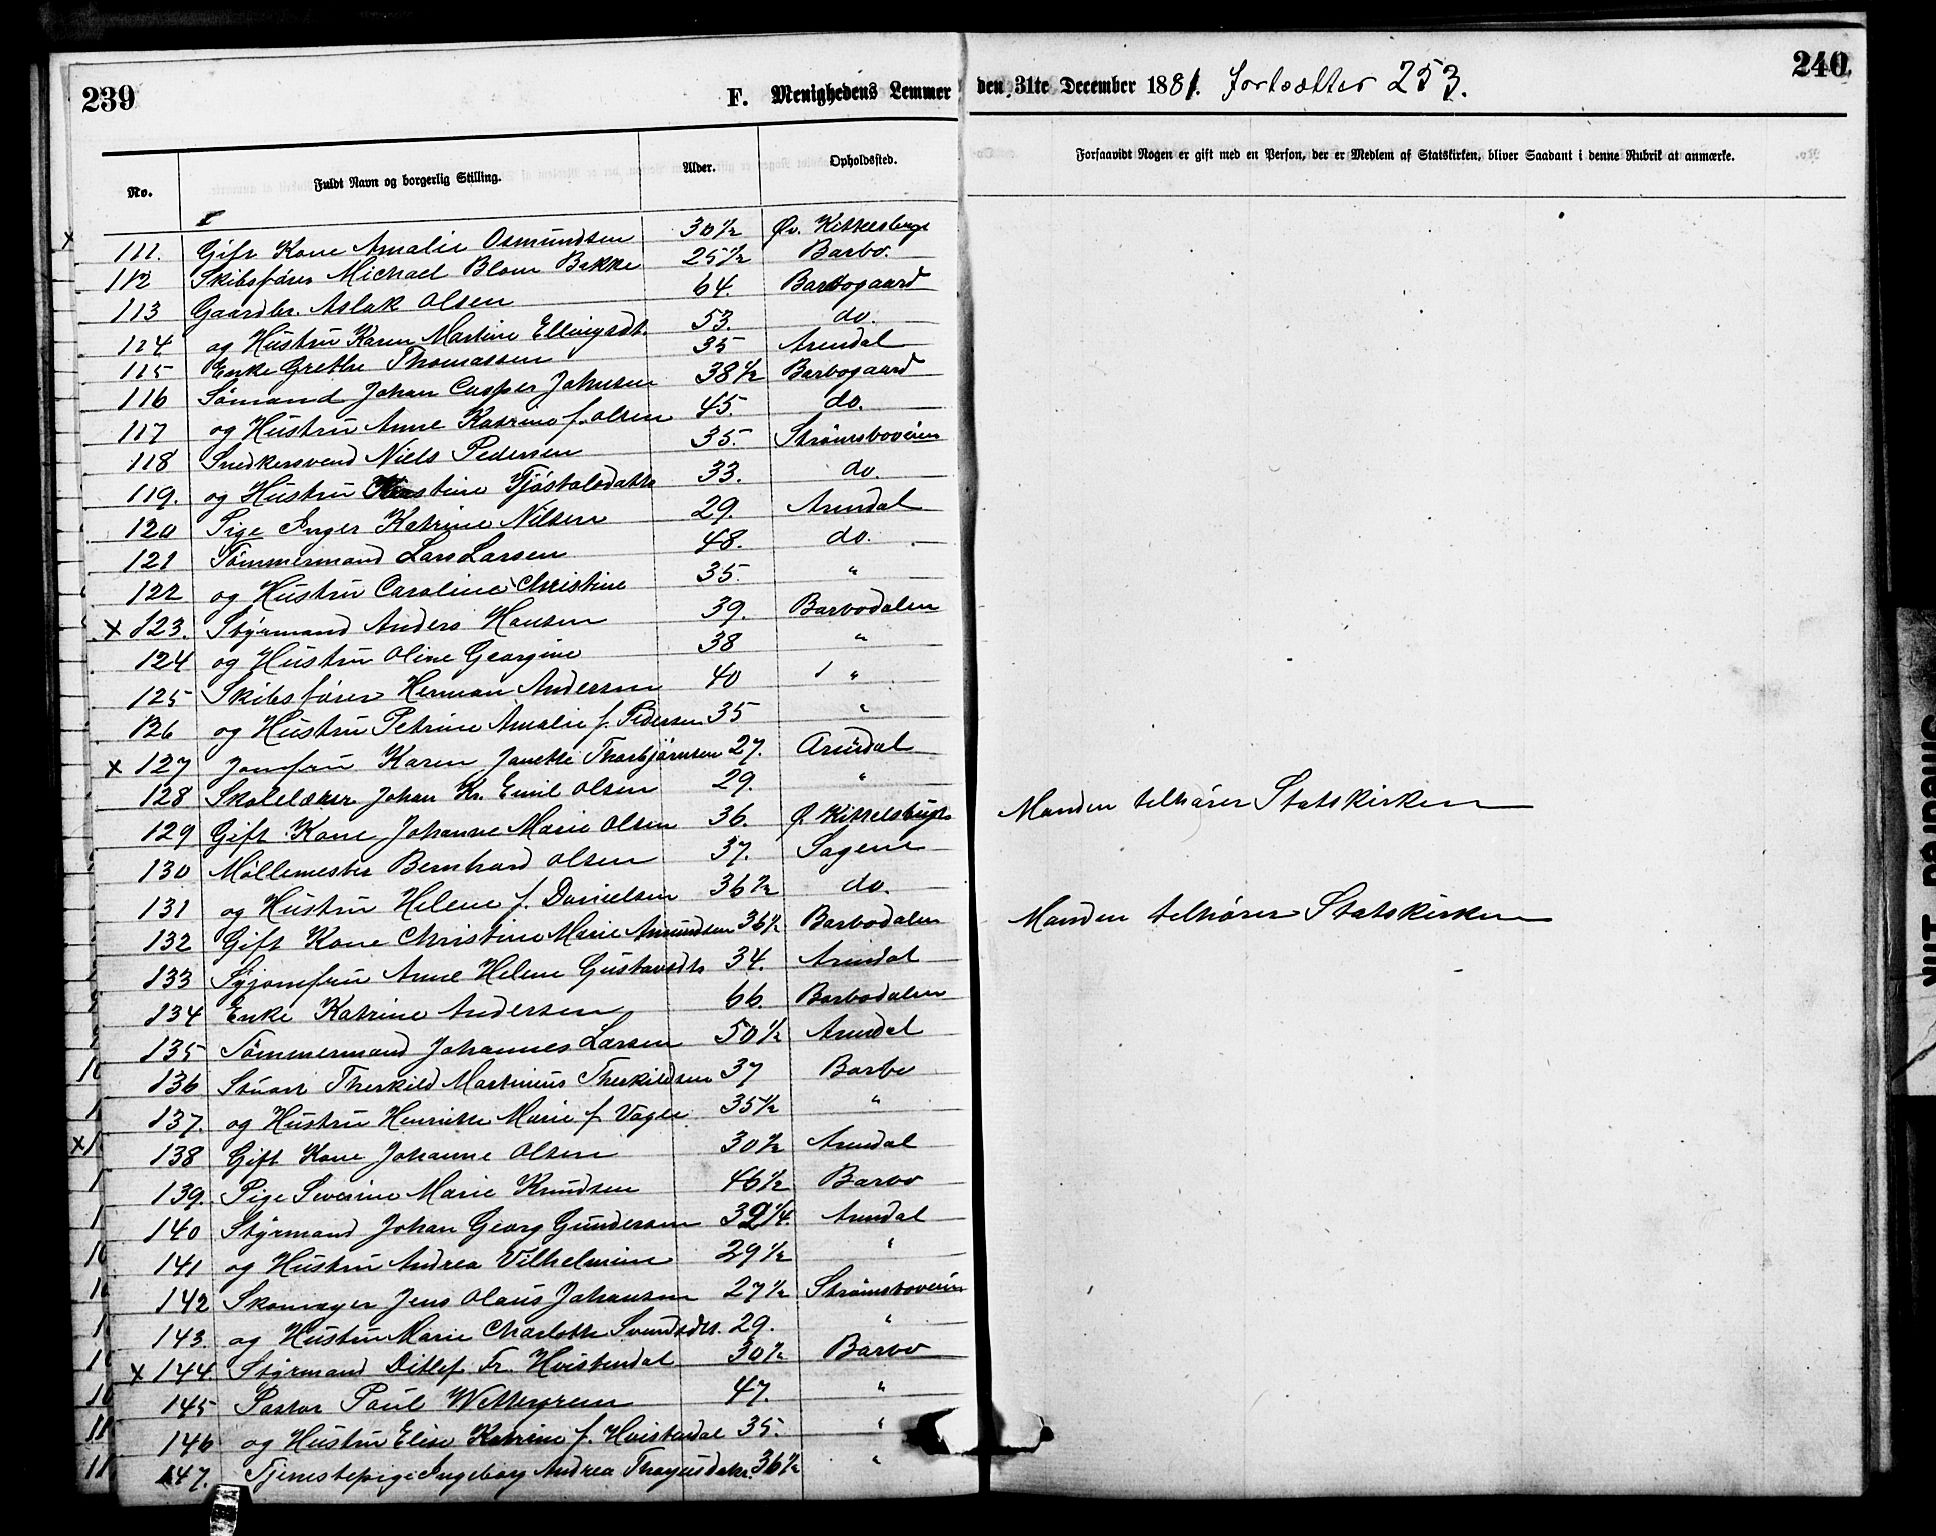 239
F. Menighedens Lemmer den 31te December 1881. fortsætter 253.
240
No. Fuldt Navn og borgerlig Stilling. Alder. Opholdssted.
Forsaavidt Nogen er gift med en Person, der er Medlem af Statskirken, bliver Saadant i denne Rubrik at anmærke.
111. Gift Kone Amalie Osmundsen 30 1/2 Øv.
112 Skibsfører Michael Blom Bakke 25 1/2 Barbo.
113 Gaardbr. Aslak Olsen 64. Barbogaard
114 og Hustru Karen Martine Ellingsdt. 53. do.
115 Enke Grethe Thomassen 35 Arendal
116 Sømand Johan Casper Johnsen 38 1/2 Barbogaard
117 og Hustru Anne Katrine f. Olsen 45. do.
118 Snedkersvend Niels Pedersen 35. Strømsboveien
119. og Hustru Kirstine 33. do.
120 Pige Inger Katrine Nilsen 29. Arendal
121 Tømmermand Lars Larsen 48. do.
122 og Hustru Caroline Christine 35. "
x 123. Styrmand Anders Hansen 39. Barbodalen
124 og Hustru Oline Georgine 38 "
125 Skibsfører Herman Andersen 40 "
126 og Hustru Petrine Amalie f. Pedersen 35 "
x 127 Jomfru Karen Janette Thorbjørnsen 27. Arendal
128 Skolelærer Johan Kr. Emil Olsen 29. "
129 Gift Kone Johanne Marie Olsen 36. Ø Kittelsbugt Manden tilhører Statskirken
130 Møllemester Bernhard Olsen 37. Sagene
131 og Hustru Helene f. Danielsen 36 1/2 do.
132 Gift Kone Christine Marie Amundsen 36 1/2 Barbodalen Manden tilhører Statskirken
133 Syjomfru Anne Helene Gustavsdtr 34. Arendal
134 Enke Katrine Andersen 66. Barbodalen
135 Tømmermand Johannes Larsen 50 1/2 Arendal
136 Stuart Therkild Martinius Therkildsen 37 Barbo
137. og Hustru Henrikke Marie f. Vagle 35 1/2 "
138 Gift Kone Johanne Olsen 30 1/2 Arendal
139. Pige Severine Marie Knudsen 46 1/2 Barbo
140 Styrmand Johan Georg Gundersen 32 1/4. Arendal
141 og Hustru Andrea Vilhelmine 29 1/2 "
142 Skomager Jens Olaus Johansen 27 1/2 Strømsboveien
143. og Hustru Marie Charlotte Svendsdtr. 29. "
x 144. Styrmand Ditlef Fr. Hvistendal 30 1/2 Barbo
145 Pastor Paul Wettergreen 47. "
146 og Hustru Elise Katrine f. Hvistendal 35. "
147. Tjenestepige Ingeborg Andrea 36 1/2 "